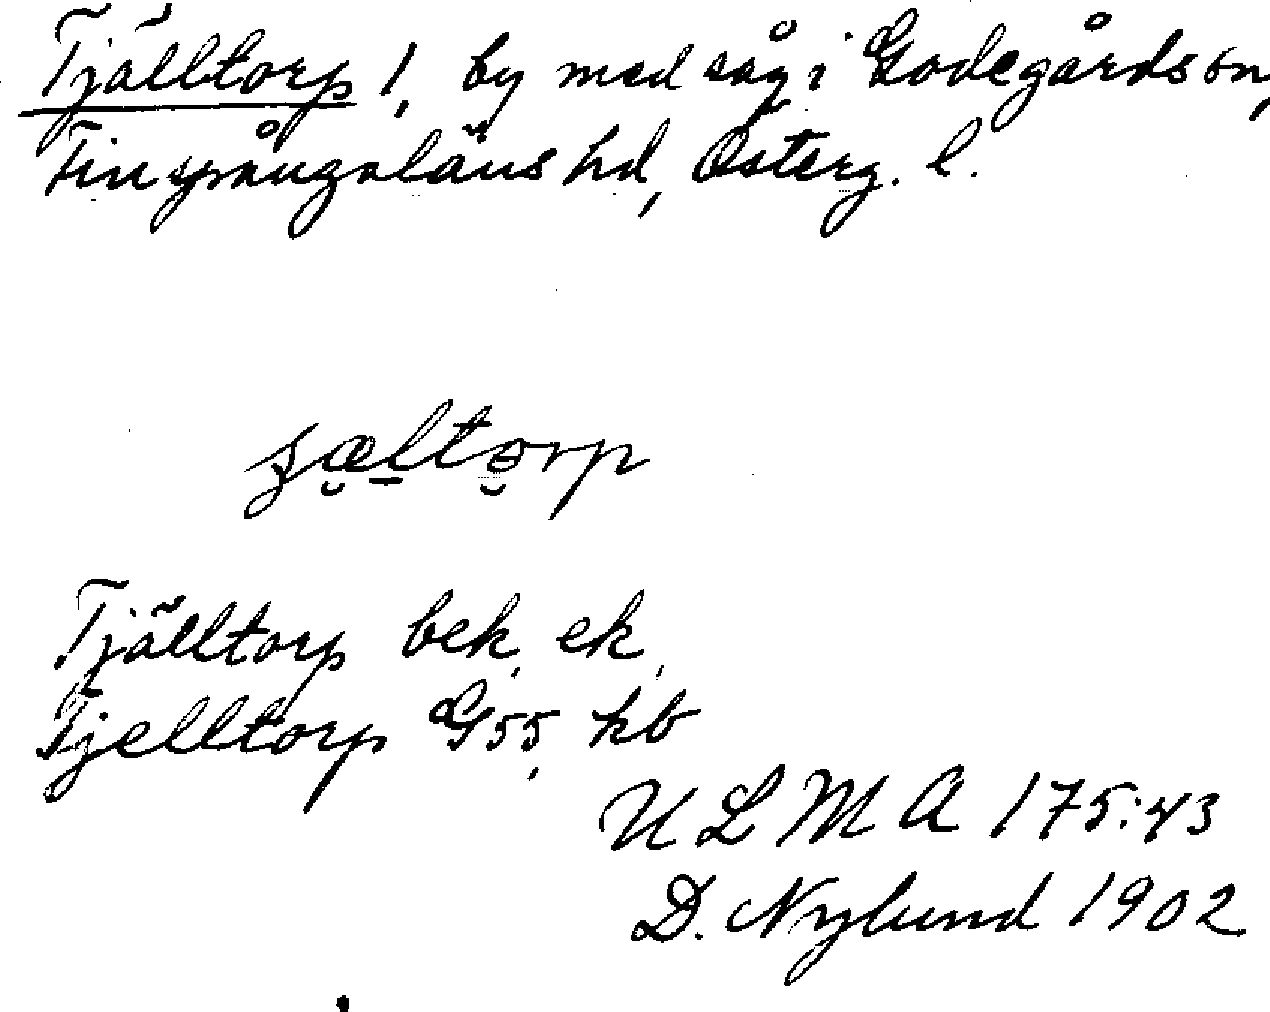 Tjälltorp 1, by med såg i Godegårds sn,
Finspångaläns hd, Österg. l.
Tjälltorp bek, ek,
Tjelltorp G55, kb
ULMA 175:43
D. Nylund 1902